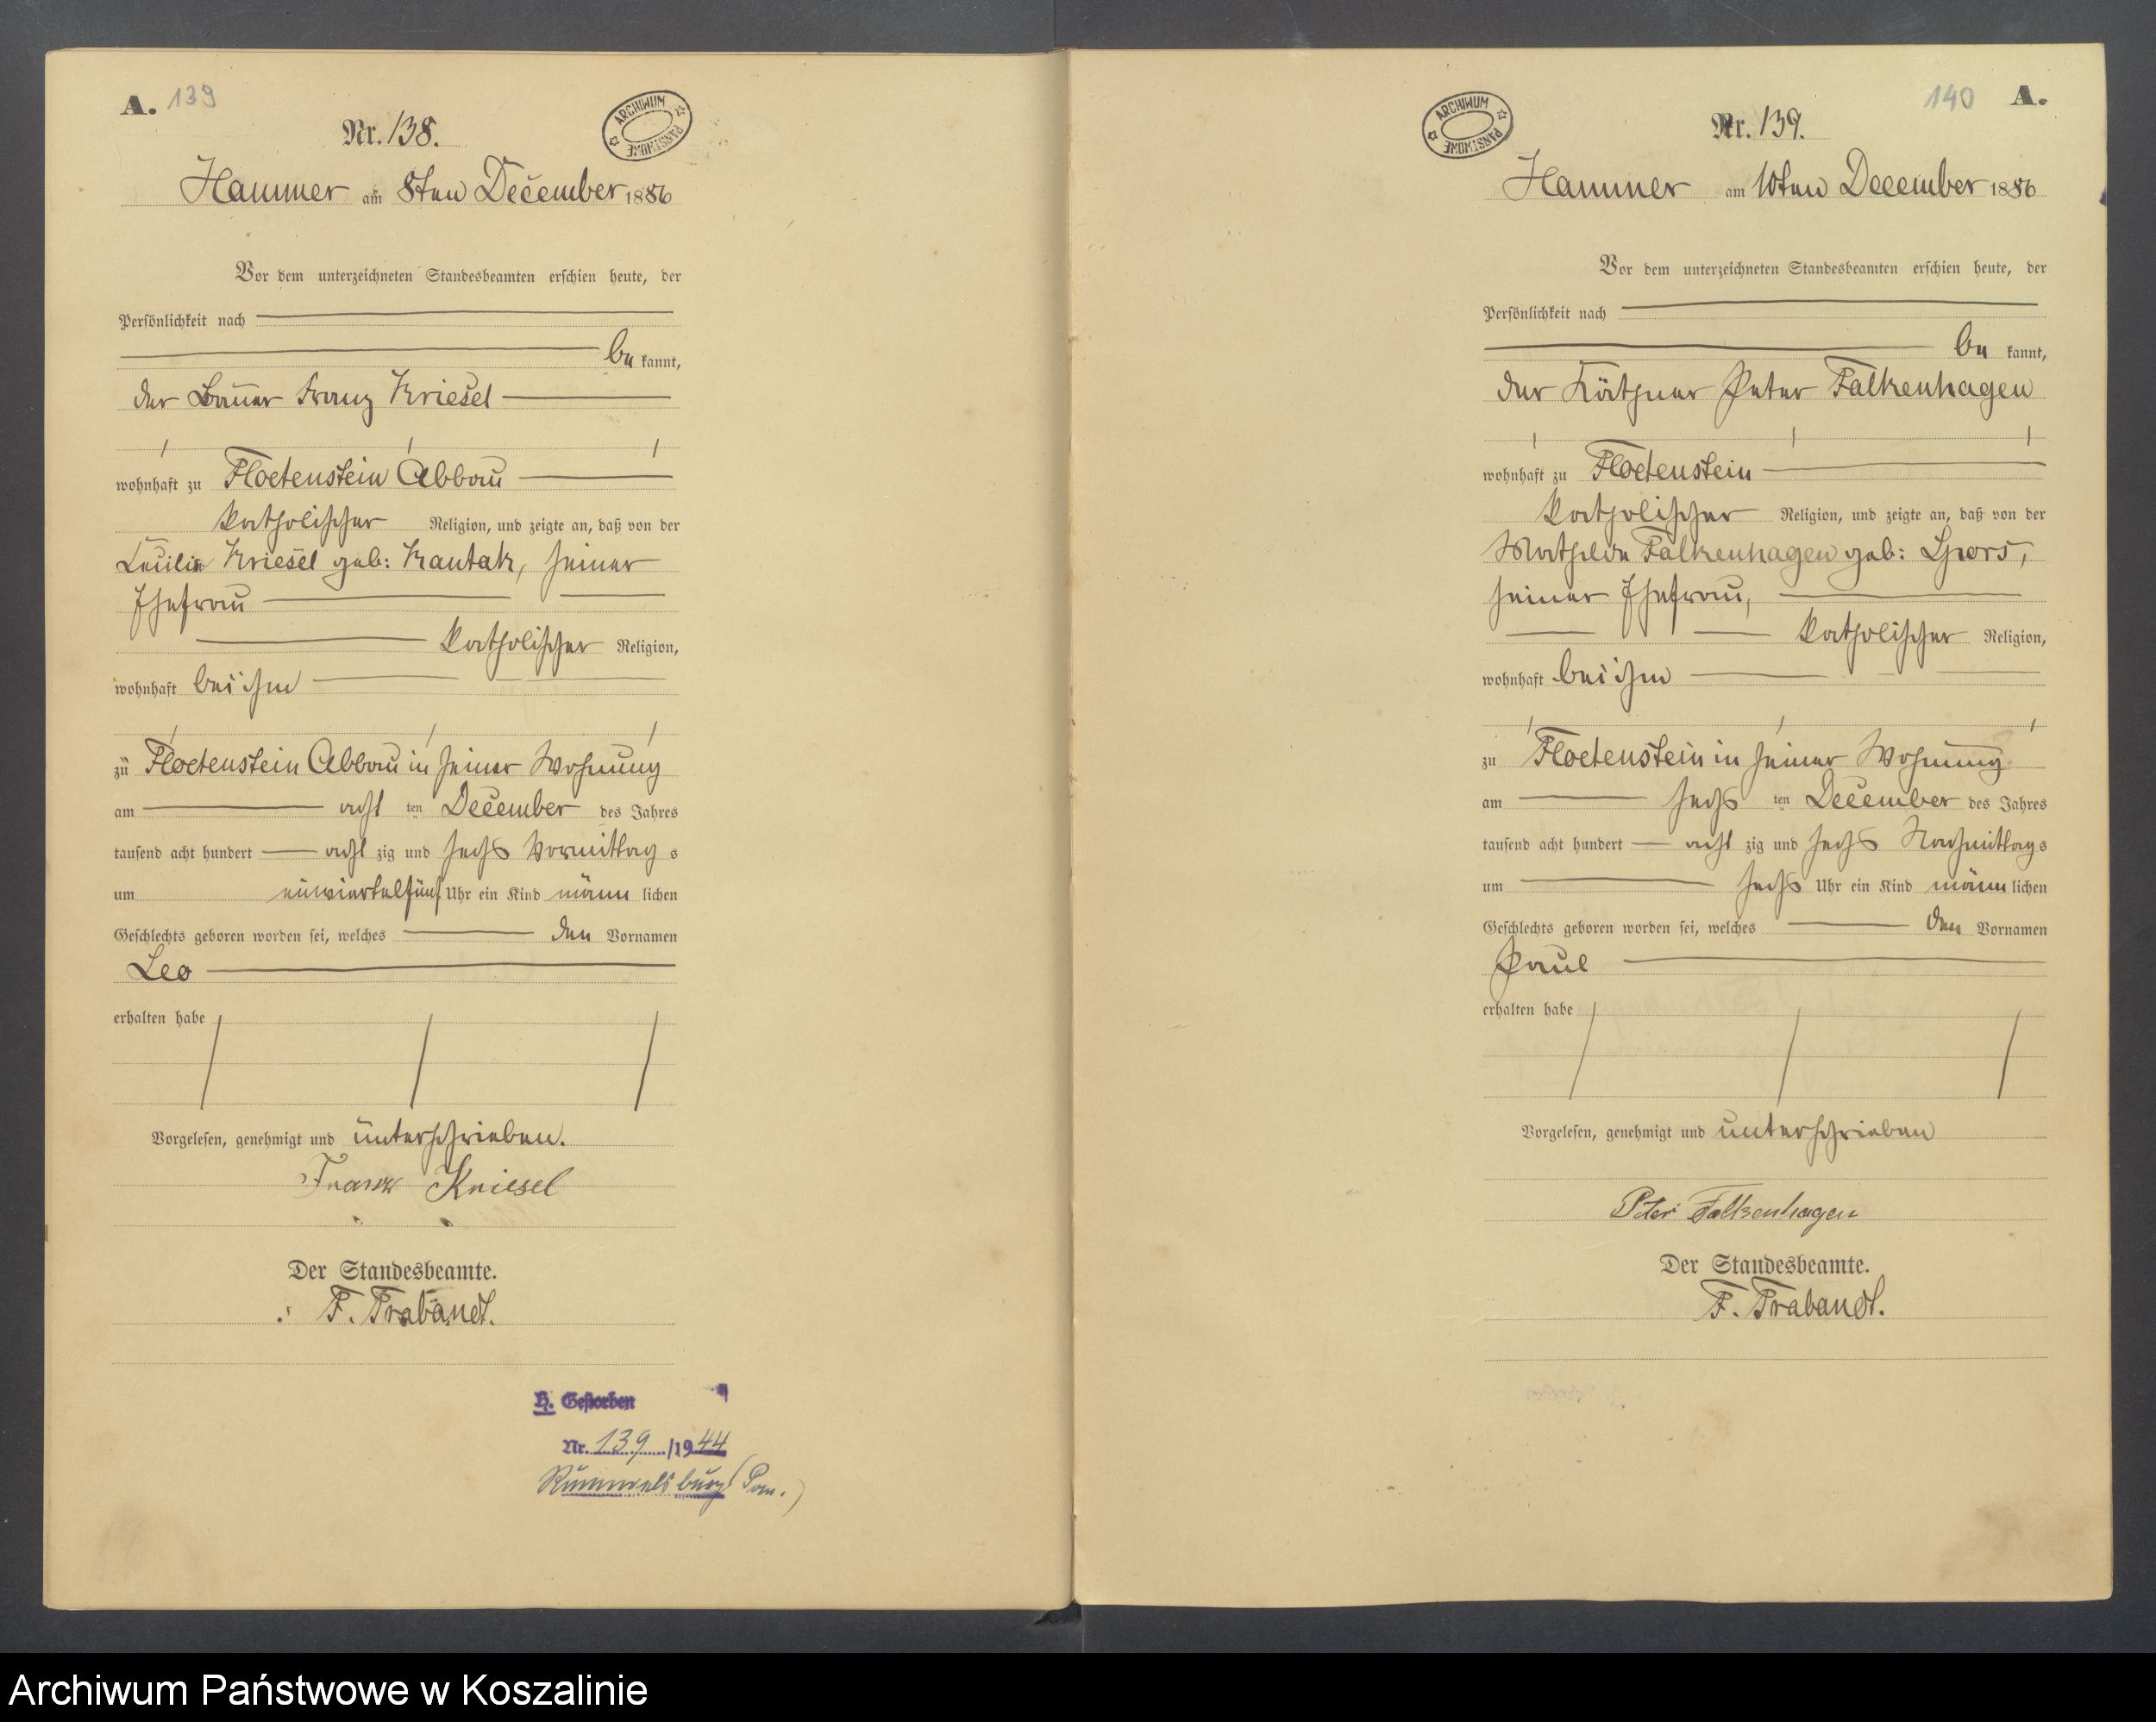 A. 139
Nr. 138.
ARCHIWUM PAŃSTWOWE
Hammer am 8ten December 1886
Vor dem unterzeichneten Standesbeamten erschien heute, der
Persönlichkeit nach
be kannt,
der Bauer Franz Kriesel
wohnhaft zu Floetenstein Abbau
katholischer Religion, und zeigte an, daß von der
Cecilie Kriesel geb: Kantak, seiner
Ehefrau
katholischer Religion,
wohnhaft bei ihm
zu Floetenstein Abbau in seiner Wohnung
am acht ten December des Jahres
tausend acht hundert acht zig und sechs Vormittag s
um Uhr ein Kind männ lichen
Geschlechts geboren worden sei, welches den Vornamen
Leo
erhalten habe
Vorgelesen, genehmigt und unterschrieben.
Franz Kriesel
Der Standesbeamte.
F. Trabandt.
H. Gestorben
Nr. 139 /1944
Rummelsburg (Pom.)
140 A.
Nr. 139.
ARCHIWUM PAŃSTWOWE
Hammer am 10ten December 1886
Vor dem unterzeichneten Standesbeamten erschien heute, der
Persönlichkeit nach
be kannt,
der Käthner Peter Falkenhagen
wohnhaft zu Floetenstein
katholischer Religion, und zeigte an, daß von der
Mathilde Falkenhagen geb: Spors,
seiner Ehefrau,
katholischer Religion,
wohnhaft bei ihm
zu Floetenstein in seiner Wohnung
am sechs ten December des Jahres
tausend acht hundert acht zig und sechs Nachmittag s
um sechs Uhr ein Kind männ lichen
Geschlechts geboren worden sei, welches den Vornamen
Paul
erhalten habe
Vorgelesen, genehmigt und unterschrieben
Peter Falkenhagen
Der Standesbeamte.
F. Trabandt.
Archiwum Państwowe w Koszalinie